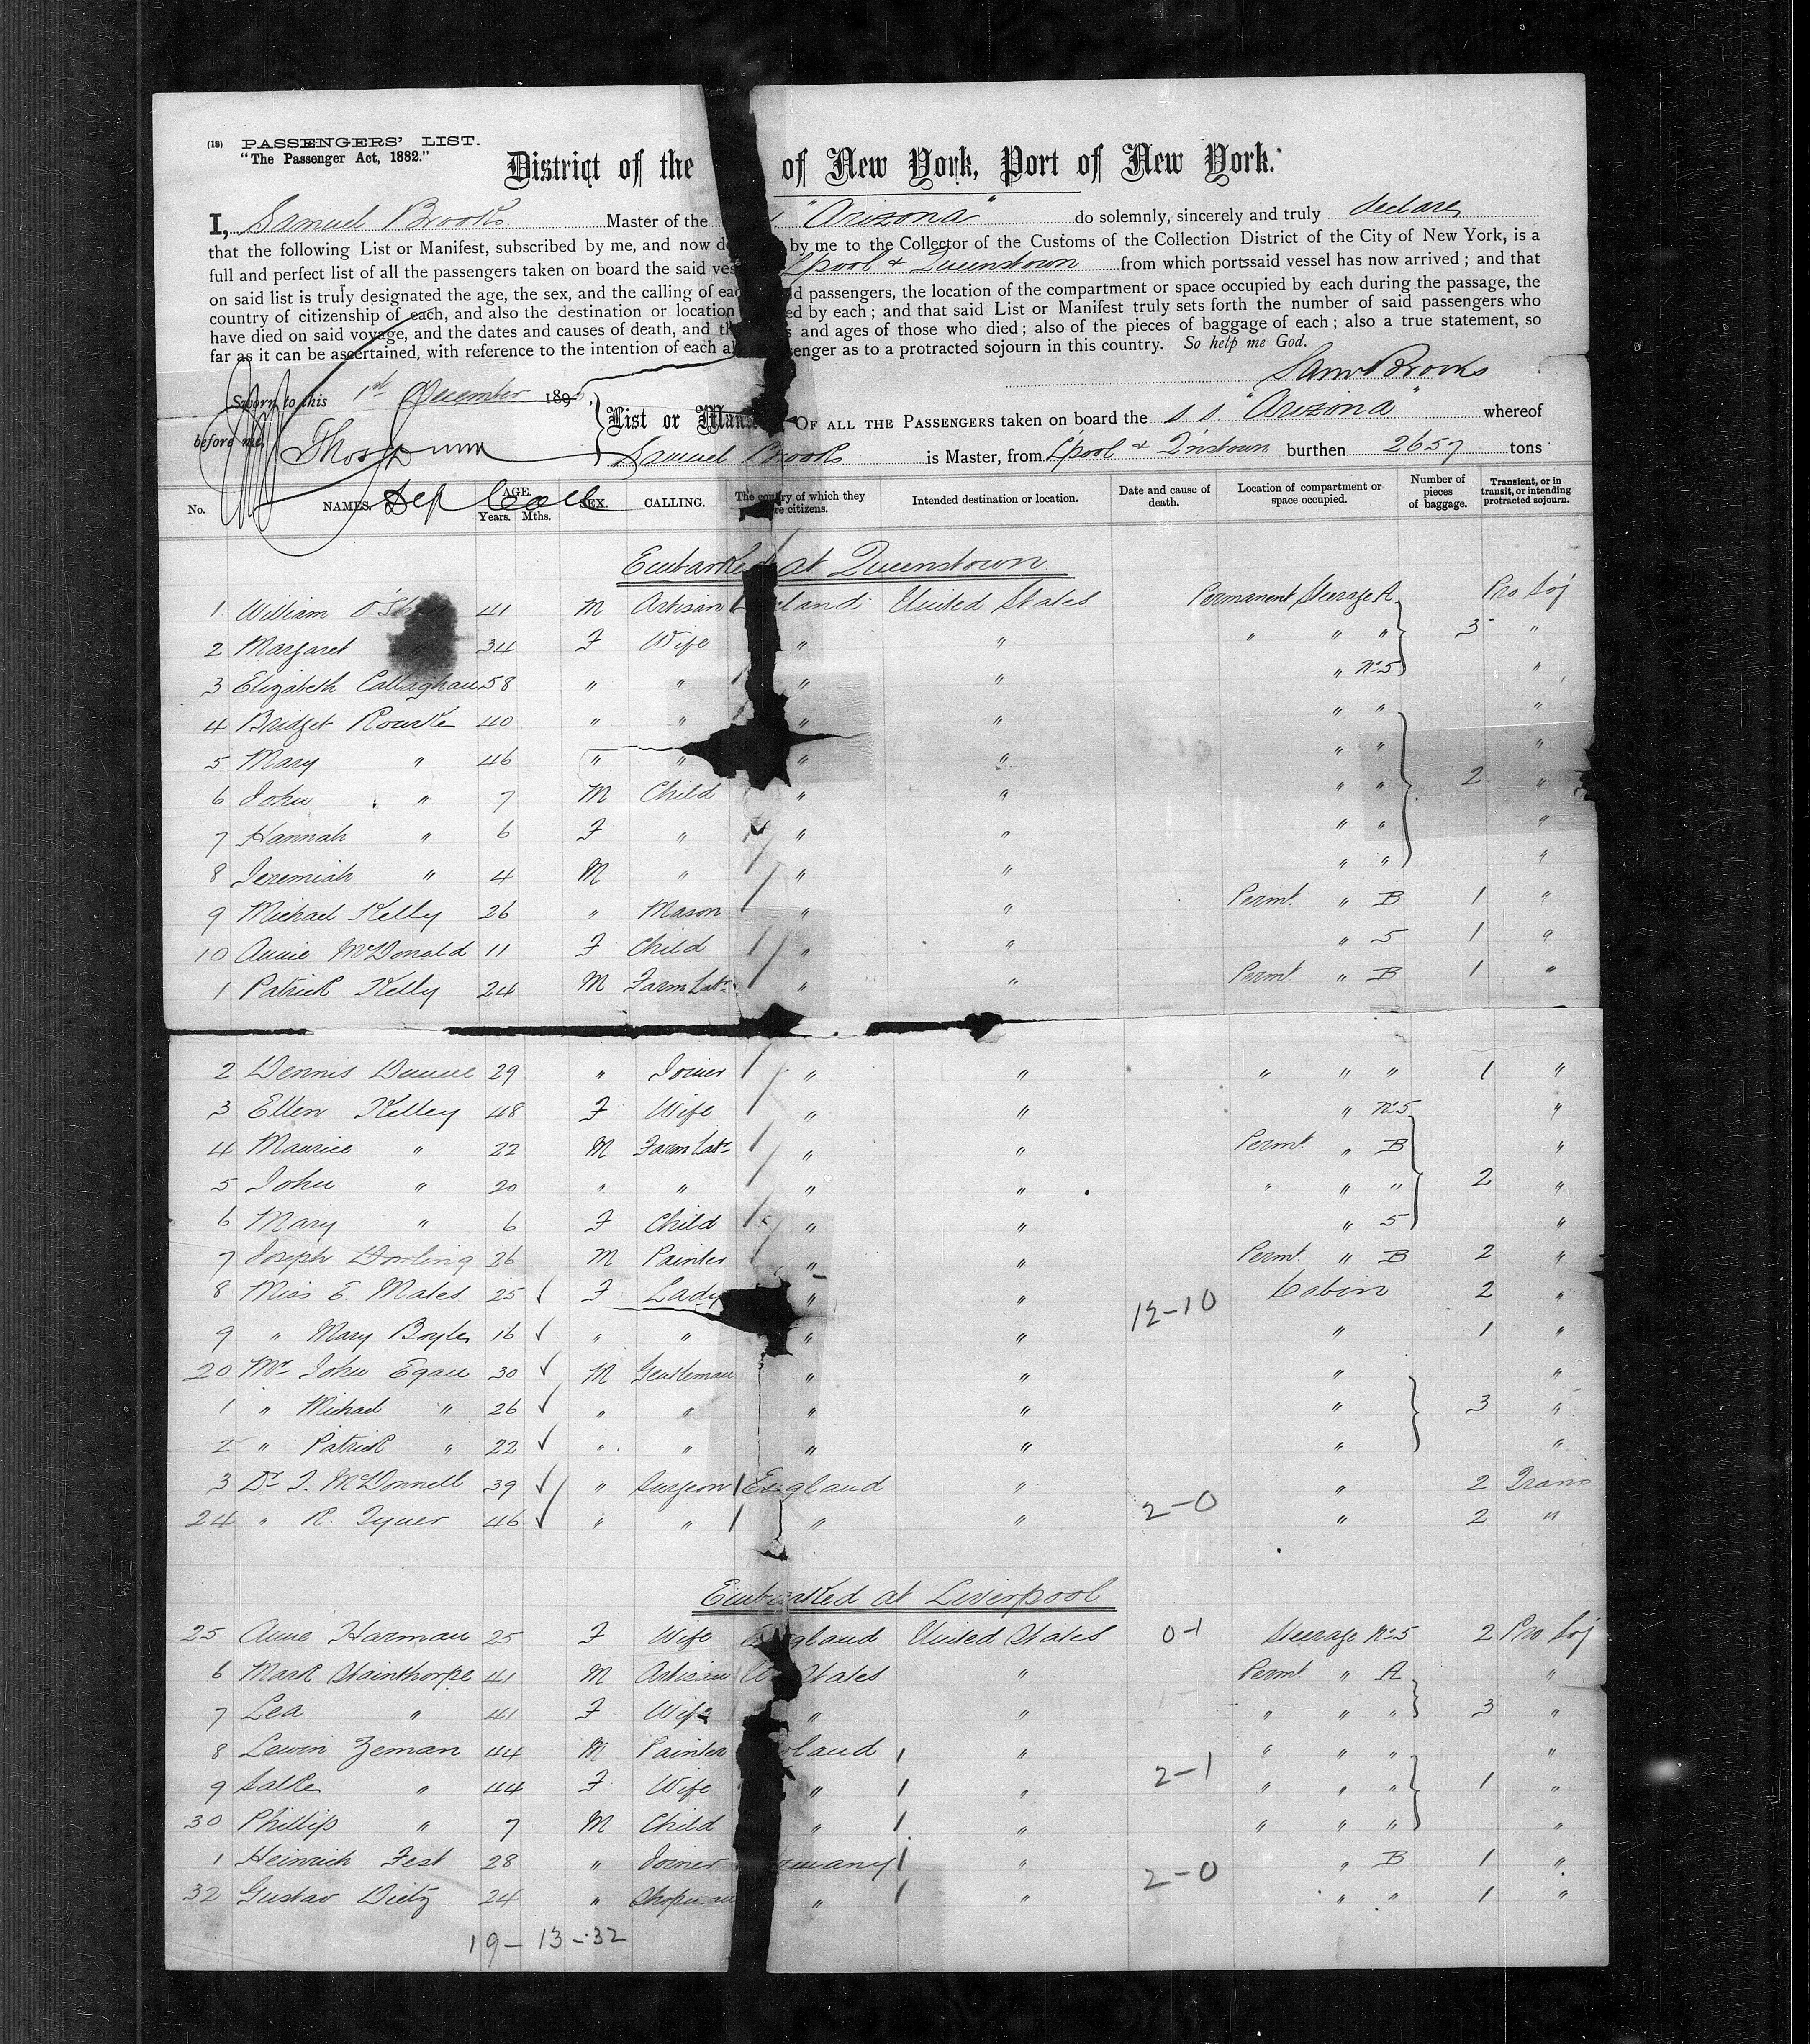 (18) PASSENGERS' LIST.
"The Passenger Act, 1882."
District of the of New York, Port of New York.
I, Samuel Brooks Master of the "Arizona" do solemnly, sincerely and truly declare
that the following List or Manifest, subscribed by me, and now by me to the Collector of the Customs of the Collection District of the City of New York, is a
full and perfect list of all the passengers taken on board the said L'pool & Queenstown from which ports said vessel has now arrived; and that
on said list is truly designated the age, the sex, and the calling of passengers, the location of the compartment or space occupied by each during the passage, the
country of citizenship of each, and also the destination or location by each; and that said List or Manifest truly sets forth the number of said passengers who
have died on said voyage, and the dates and causes of death, and and ages of those who died; also of the pieces of baggage of each; also a true statement, so
far as it can be ascertained, with reference to the intention of each as to a protracted sojourn in this country. So help me God.
Saml Brooks
Sworn to this 1st December 189
before me Thos Dunn
Dep Coll
List or OF ALL THE PASSENGERS taken on board the s s "Arizona" whereof
Samuel Brooks is Master, from L'pool & Q'nstown burthen 2657 tons
No. NAMES. AGE. Years. Mths. SEX. CALLING. The country of which they are citizens. Intended destination or location. Date and cause of death. Location of compartment or space occupied. Number of pieces of baggage. Transient, or in transit, or intending protracted sojourn.
Embarked at Queenstown
1 William 41 M Artisan Ireland United States Permanent Steerage A Pro Soj
2 Margaret " 34 F Wife " " " " " 3 "
3 Elizabeth Callaghan 58 " " " " " No 5 "
4 Bridget Rourke 40 " " " " " " "
5 Mary " 46 " " " " " " "
6 John " 7 M Child " " " " 2 "
7 Hannah " 6 F " " " " " "
8 Jeremiah " 4 M " " " " " "
9 Michael Kelly 26 " Mason " " Permt. " B 1 "
10 Annie McDonald 11 F Child " " " 5 1 "
1 Patrick Kelly 24 M Farm Labr " " Permt " B 1 "
2 Dennis Dunne 29 " Joiner " " " " " 1 "
3 Ellen Kelley 48 F Wife " " " No 5 "
4 Maurice " 22 M Farm Labr " " Permt. " B "
5 John " 20 " " " " " " " 2 "
6 Mary " 6 F Child " " " 5 "
7 Joseph Dowling 26 M Painter " " Permt. " B 2 "
8 Miss E. Males 25 F Lady " " 12-10 Cabin 2 "
9 " Mary Boyle 16 " " " " " 1 "
20 Mr John Egan 30 M Gentleman " " " "
1 " Michael " 26 " " " " " 3 "
2 " Patrick " 22 " " " " " "
3 Dr J. McDonnell 39 " Surgeon England " " 2 Trans
24 " R. Tyner 46 " " " " 2-0 " 2 "
Embarked at Liverpool
25 Anne Harman 25 F Wife England United States 0-1 Steerage No 5 2 Pro Soj
6 Mark Stainthorpe 41 M Artisan States " Permt. " A "
7 Lea " 41 F Wife " " " " " 3 "
8 Lewin Zeman 44 M Painter " " " " "
9 Salke " 44 F Wife " " 2-1 " " " 1 "
30 Phillip " 7 M Child " " " " " "
1 Heinrich Fest 28 " Joiner Germany " " B 1 "
32 Gustav Dietz 24 " Shopman " " 2-0 " " 1 "
19-13-32